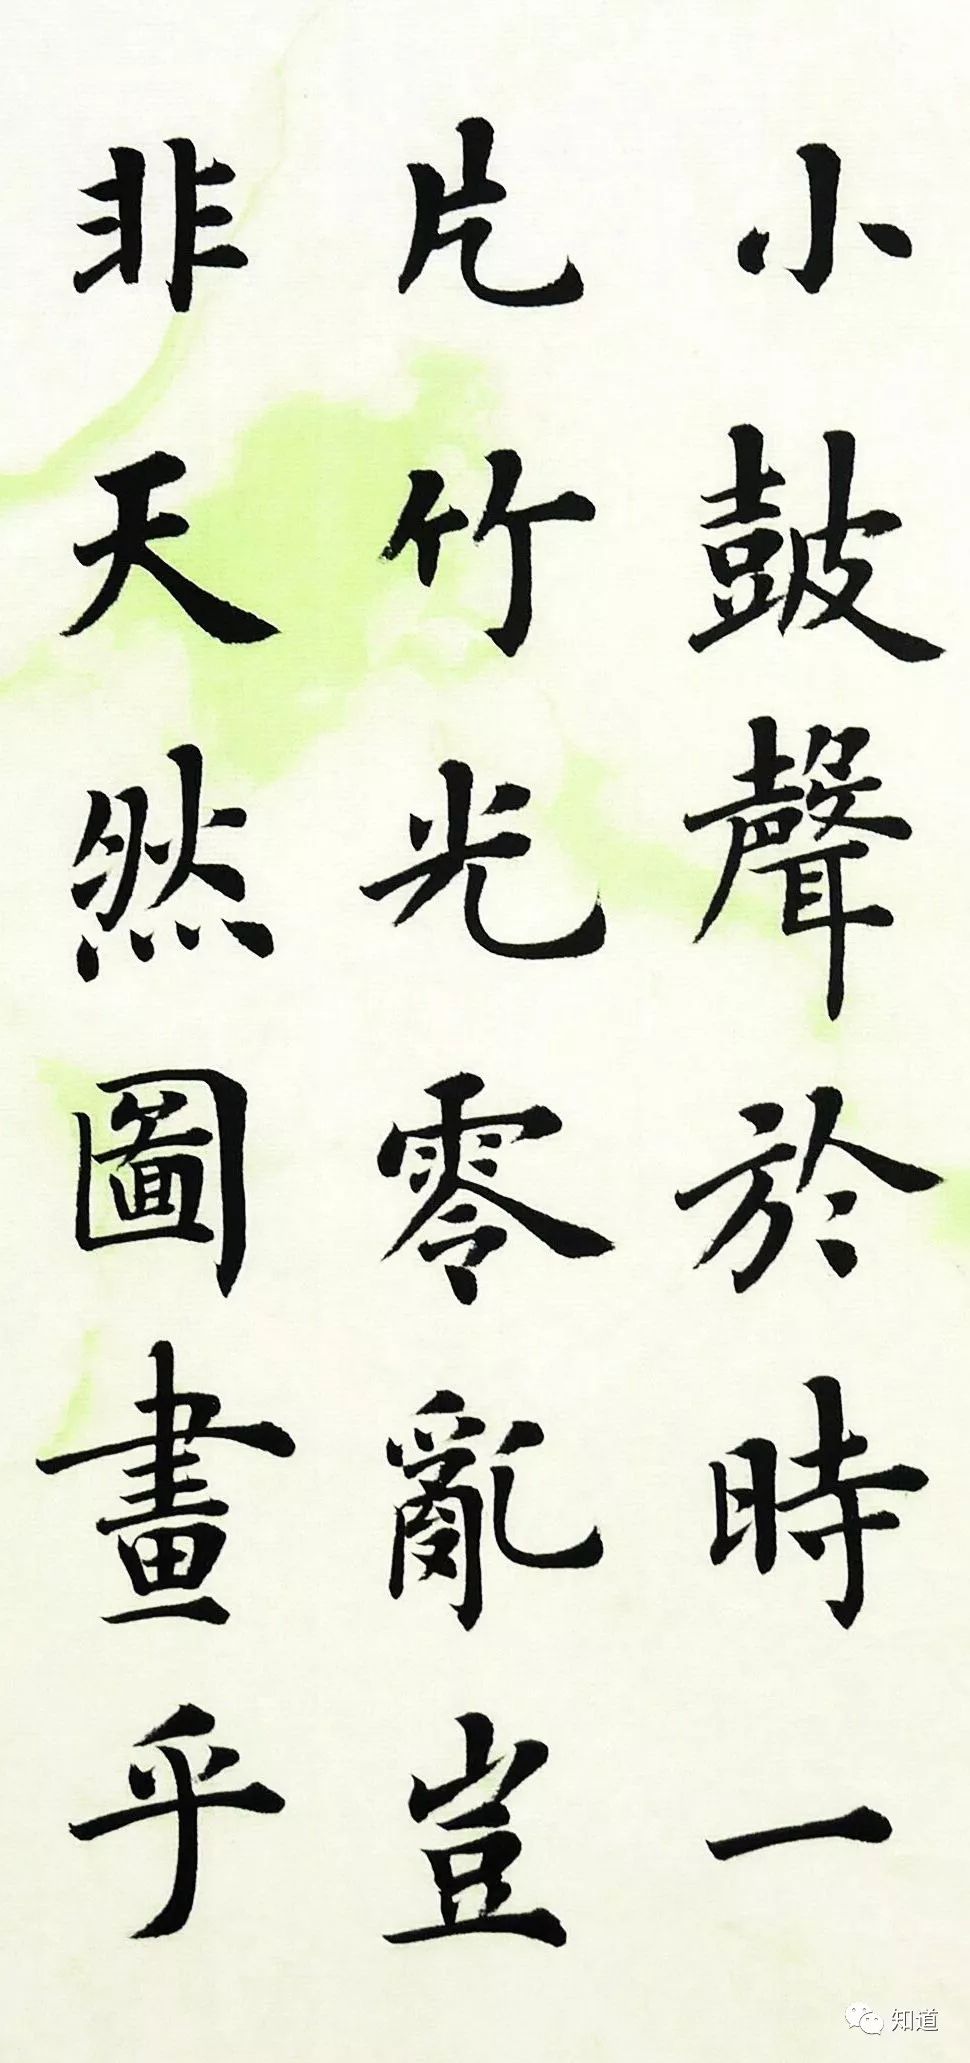 小鼓聲於時一
片竹光零亂豈
非天然圖畫乎
知道